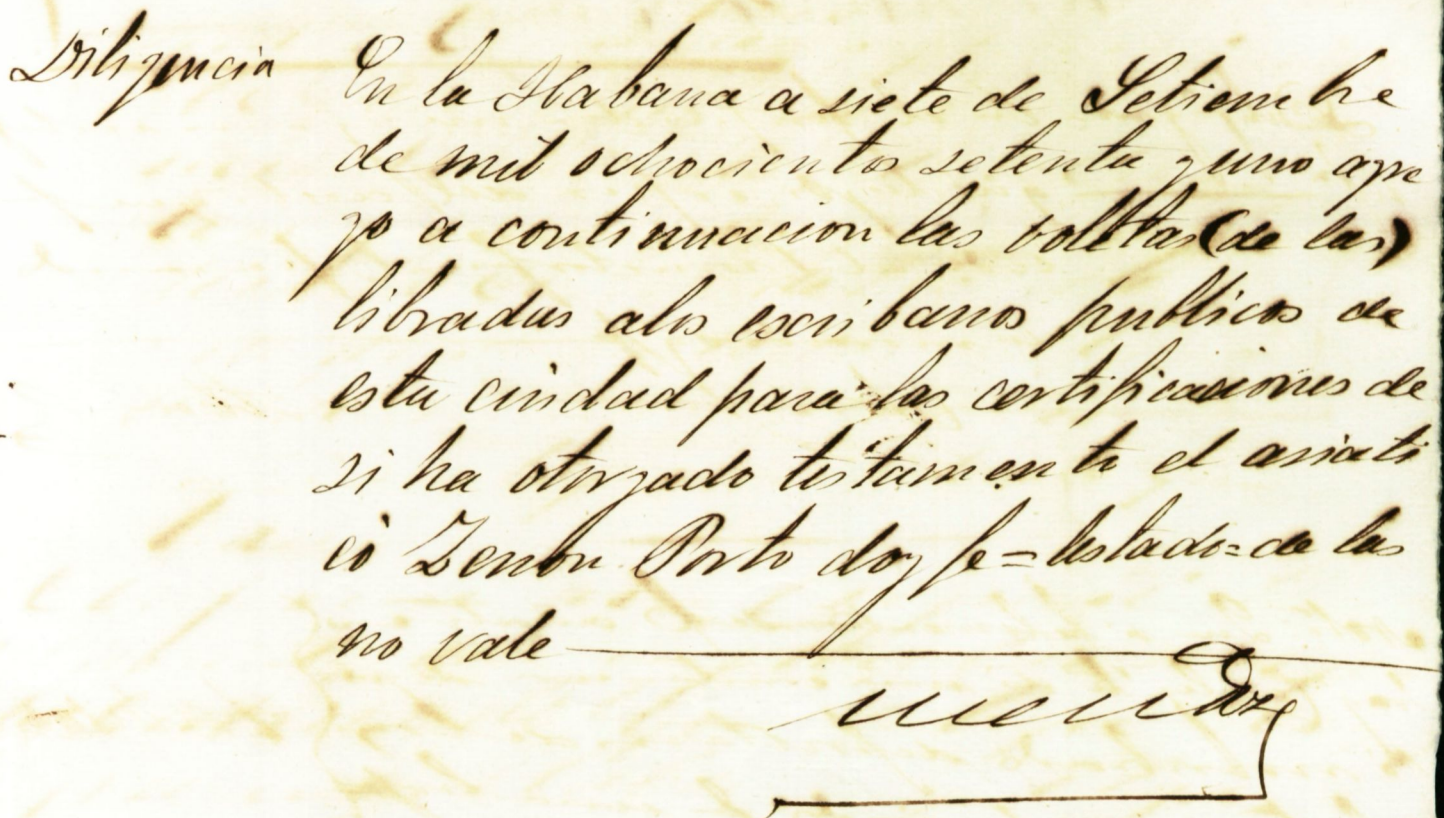 Diligencia
En la Habana a siete de Setiembre
de mil ochocientos setenta y uno agre
go a continuacion las boletas (de las)
libradas a los escribanos publicos de
esta ciudad para las certificaciones de
si ha otorgado testamento el asiati
co Zenon Porto doy fe = testado = de las
no vale